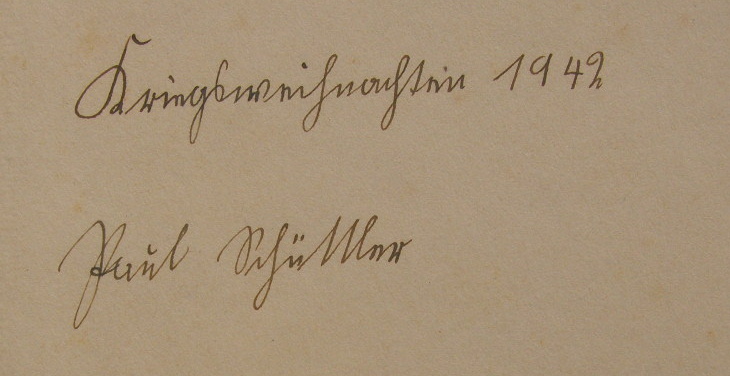 Kriegsweihnachten 1942
Paul Schüttler